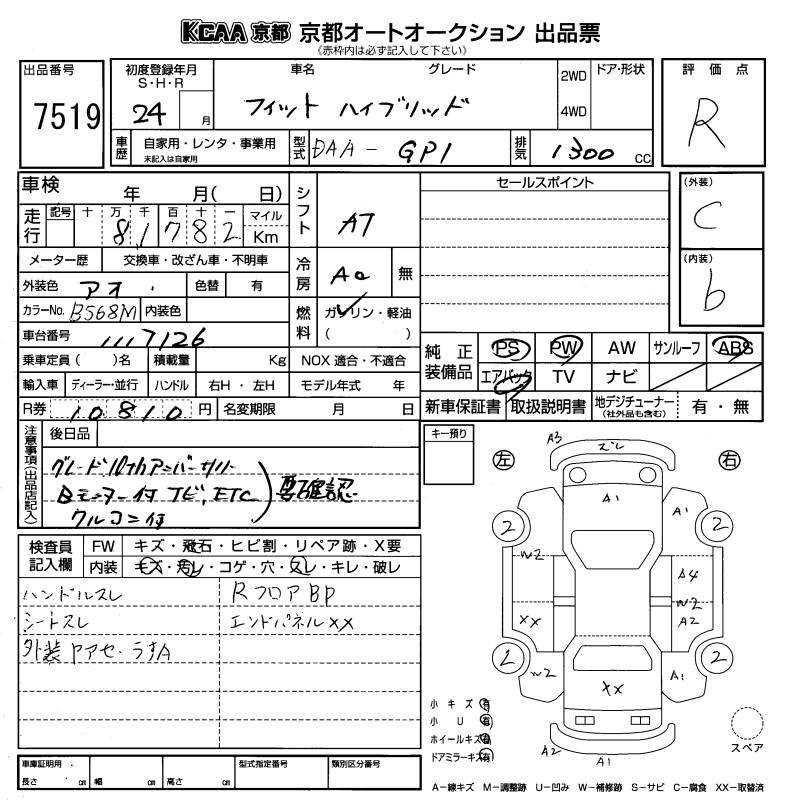 KCAA 京都 京都オートオークション 出品票
(赤枠内は必ず記入して下さい)
出品番号
7519
初度登録年月
S・H・R
24 月
車名 グレード
フィット ハイブリッド
2WD
4WD
ドア・形状
評価点
R
車歴
自家用・レンタ・事業用
未記入は自家用
型式
DAA - GP1
排気
1300 CC
車検 年 月( 日)
走行
記号 十 万 千 百 十 一
8 1 7 8 2
マイル
Km
シフト
AT
セールスポイント
(外装)
C
(内装)
b
メーター歴 交換車・改ざん車・不明車
外装色 アオ 色替 有
冷房
AC 無
カラーNo. B568M 内装色
燃料
ガソリン・軽油
( )
車台番号 1117126
乗車定員( )名 積載量 Kg NOX 適合・不適合
輸入車 ディーラー・並行 ハンドル 右H・左H モデル年式 年
R券 10810 円 名変期限 月 日
純正装備品
PS PW AW サンルーフ ABS
エアバック TV ナビ
新車保証書 取扱説明書 地デジチューナー
(社外品も含む)
有・無
注意事項(出品店記入)
後日品
グレード10thアニバーサリー
Bモニター付 TV, ETC
クルコン付
要確認
キー預り
左
右
A3
ズレ
2
2
A1
A1
W2
A4
W2
A2
XX
2
2
W2
XX
A1
A2
A1
スペア
検査員記入欄
FW キズ・飛石・ヒビ割・リペア跡・X要
内装 キズ・汚レ・コゲ・穴・スレ・キレ・破レ
ハンドルスレ
Rフロア BP
シートスレ
エンドパネルXX
外装ヤケアセ・うすA
小キズ 有
小U 有
ホイールキズ 有
ドアミラーキズ 有
車庫証明用
長さ cm 幅 cm 高さ cm
型式指定番号
類別区分番号
A―線キズ M―調整跡 U―凹み W―補修跡 S―サビ C―腐食 XX―取替済